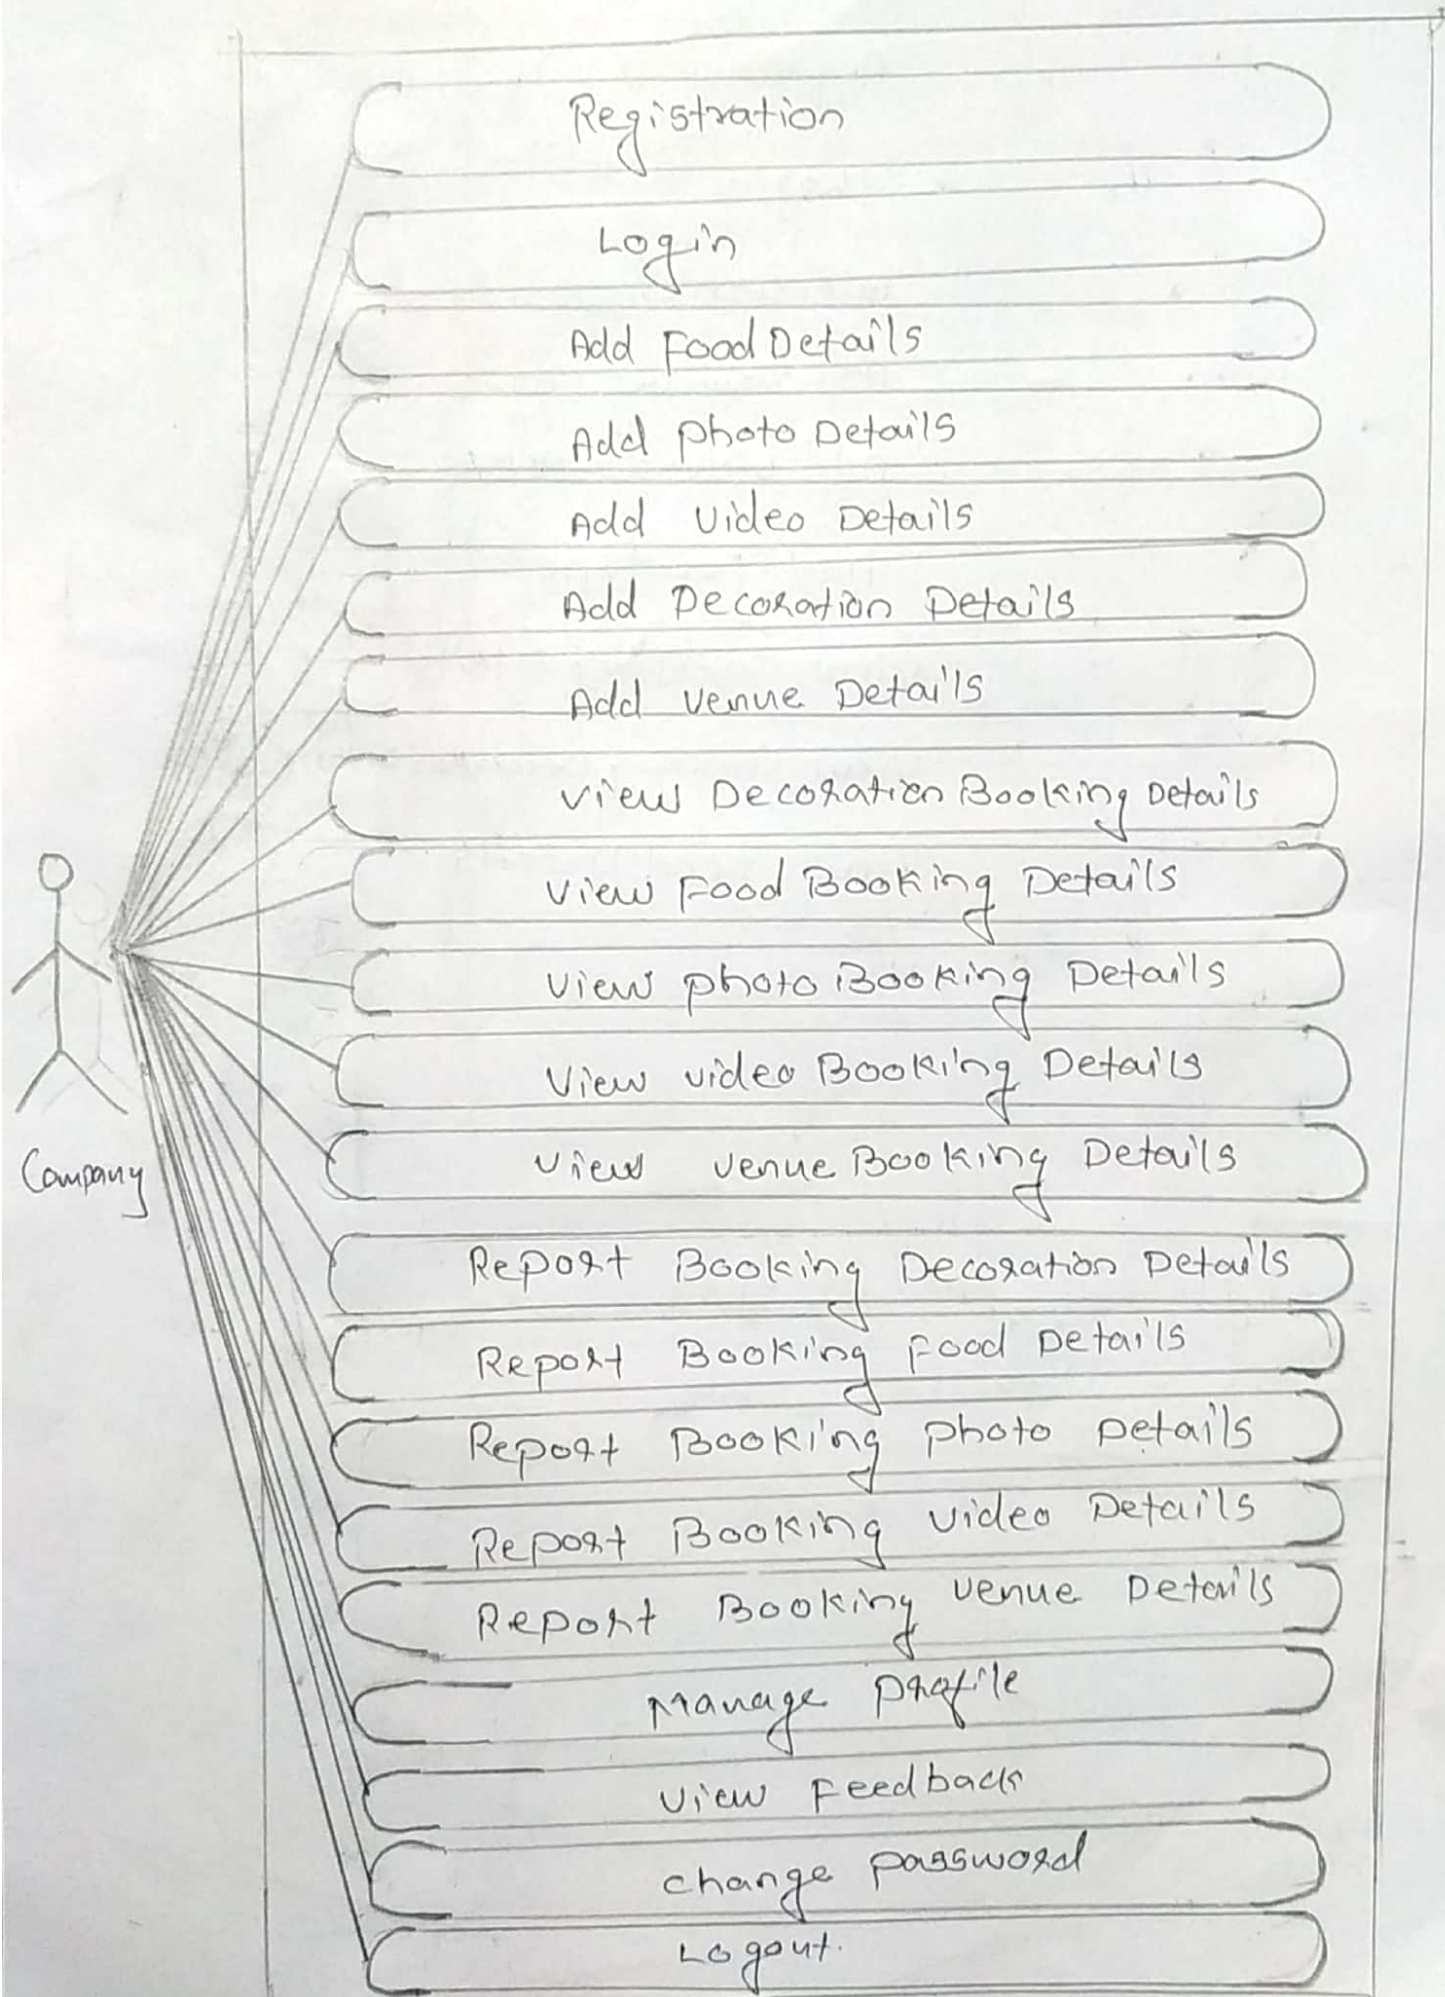 Registration
Login
Add Food Details
Add Photo Details
Add Video Details
Add Decoration Details
Add Venue Details
View Decoration Booking Details
View Food Booking Details
View Photo Booking Details
View Video Booking Details
View Venue Booking Details
Company
Report Booking Decoration Details
Report Booking Food Details
Report Booking Photo Details
Report Booking Video Details
Report Booking Venue Details
Manage Profile
View Feedback
Change Password
Logout.